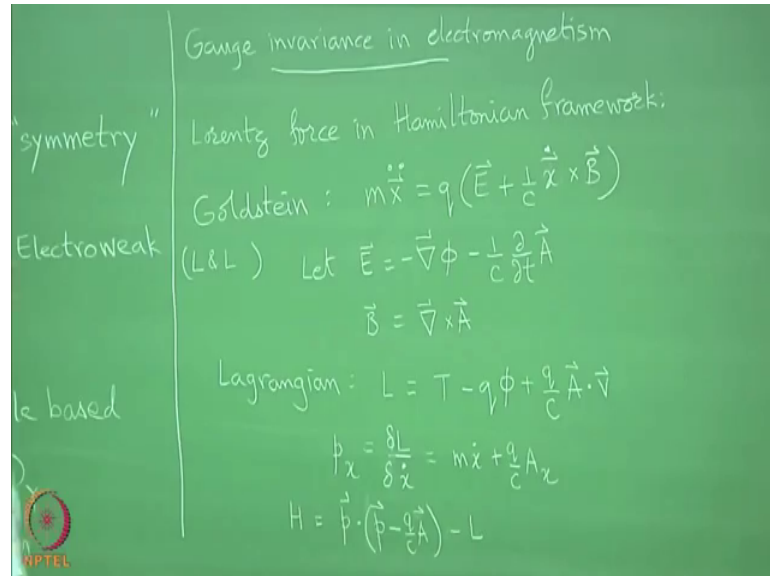 "symmetry"
Electroweak
le based
Gauge invariance in electromagnetism
Lorentz force in Hamiltonian framework:
Goldstein : m\ddot{\vec{x}} = q(\vec{E} + \frac{1}{c} \dot{\vec{x}} × \vec{B})
(L&L) Let \vec{E} = -\vec{∇}ϕ - \frac{1}{c} \frac{∂}{∂t} \vec{A}
\vec{B} = \vec{∇} × \vec{A}
Lagrangian : L = T - qϕ + \frac{q}{c} \vec{A}·\vec{v}
p_x = \frac{δL}{δ\dot{x}} = m\dot{x} + \frac{q}{c} A_x
H = \vec{p}·(\vec{p} - \frac{q}{c}\vec{A}) - L
NPTEL